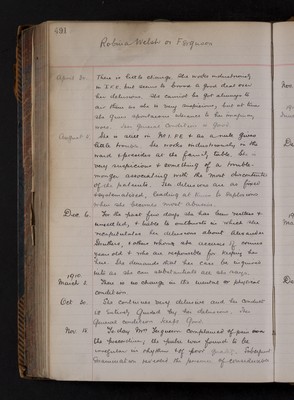 491
Robina Welsh or Ferguson
April 20. There is little change. She works industriously
in I.F.E. but seems to brood a good deal over
her delusions. She cannot be got always to
air them as she is very suspicious, but at times
she gives spontaneous utterance to her imaginary
woes. Her General Condition is Good.
August 5. She is still in I.F.E. & as a rule gives
little trouble. She works industriously in the
ward & presides at the family table. She is
very suspicious & something of a trouble-
monger associating with the most discontented
of the patients. Her delusions are as fixed
& systematised, leading at times to explosions
when she becomes most abusive.
Dec. 6. For the past few days she has been restless &
unsettled, & liable to outbursts in which she
recapitulates her delusions about Alexander
Struthers, & others whom she accuses of
years old & who are responsible for keeping her
here. She demands that her case be inquired
into as she can substantiate all she says.
1910
March 2. There is no change in the mental or physical
condition.
Oct 20. She continues very delusive and her conduct
is entirely guided by her delusions. Her
General condition keeps Good.
Nov. 16. To-day Mrs Ferguson complained of pain over
the praecordium; the pulse was found to be
irregular in rhythm & of poor quality. Subsequent
examination revealed the presence of considerable